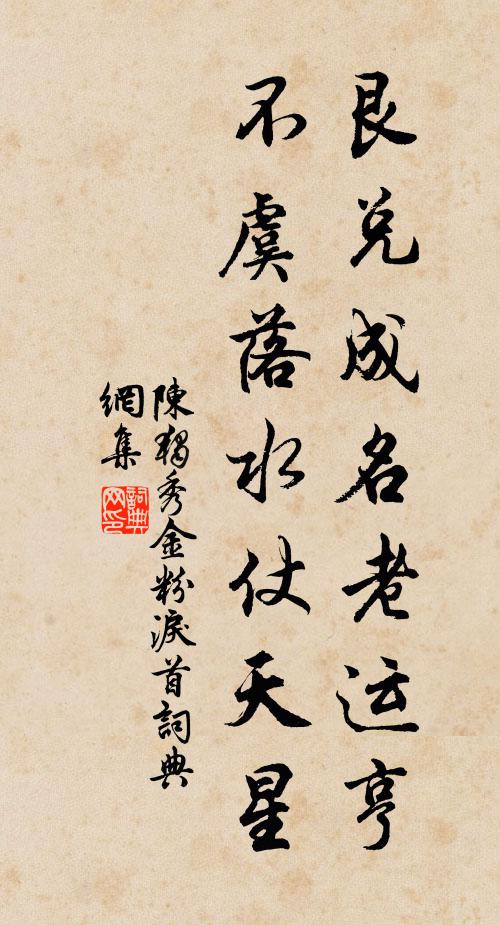 艮兑成名老运亨
不虞落水仗天星
陳獨秀金粉淚首詞典
網集
詞典网印